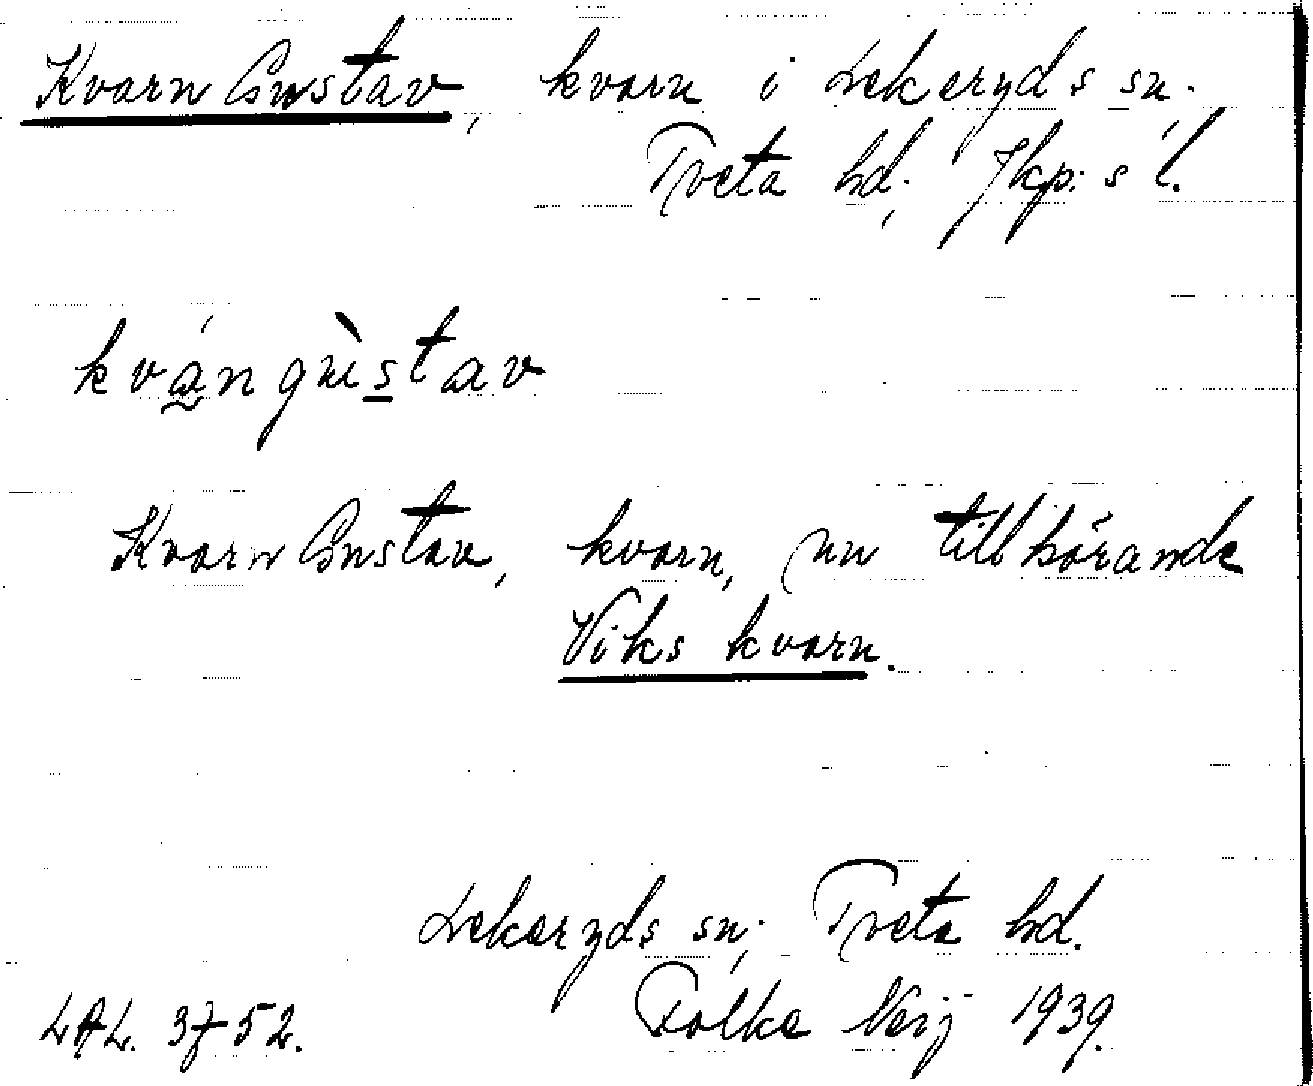 KvarnGustav, kvarn i Lekeryds sn,
Tveta hd, Jkp:s l.
kvángùstav
KvarnGustav, kvarn, nu tillhörande
Viks kvarn.
Lekeryds sn, Tveta hd.
LAL. 3752. Folke Neij 1939.